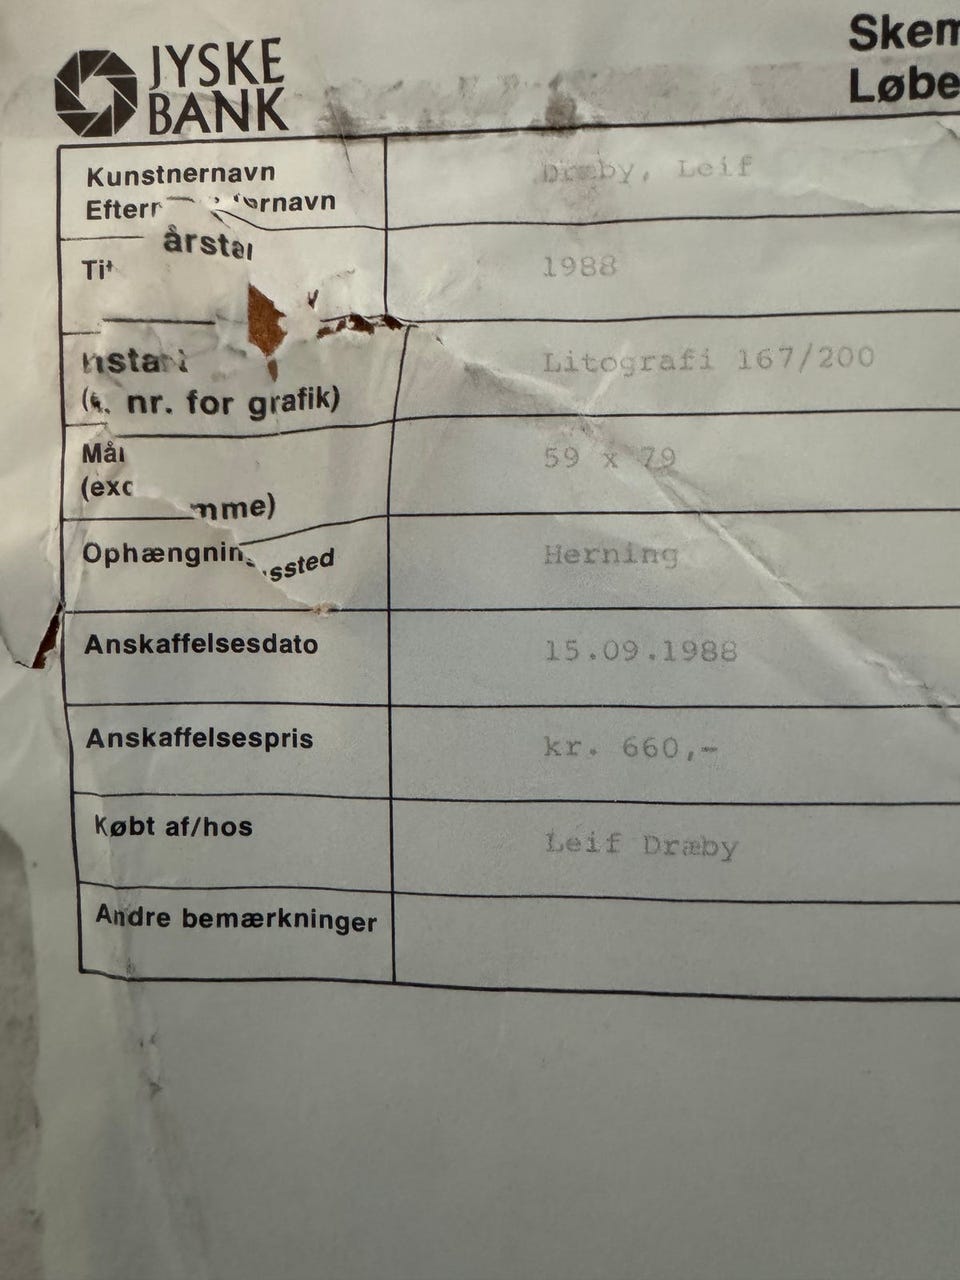 JYSKE
BANK
Skem
Løbe
Kunstnernavn
Efterr ornavn
Dræby, Leif
Tit årstal
1988
nstart
nr. for grafik)
Litografi 167/200
Mål
(exc mme)
59 x 79
Ophængnin ssted
Herning
Anskaffelsesdato
15.09.1988
Anskaffelsespris
kr. 660,-
Købt af/hos
Leif Dræby
Andre bemærkninger